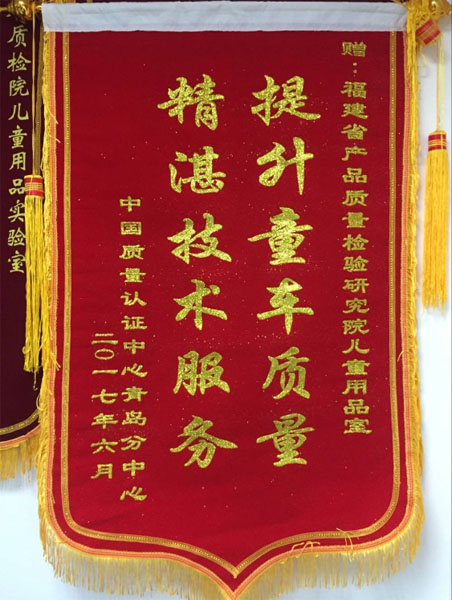 赠：福建省产品质量检验研究院儿童用品室
提升童车质量
精湛技术服务
中国质量认证中心青岛分中心
二〇一七年六月
质检院儿童用品实验室